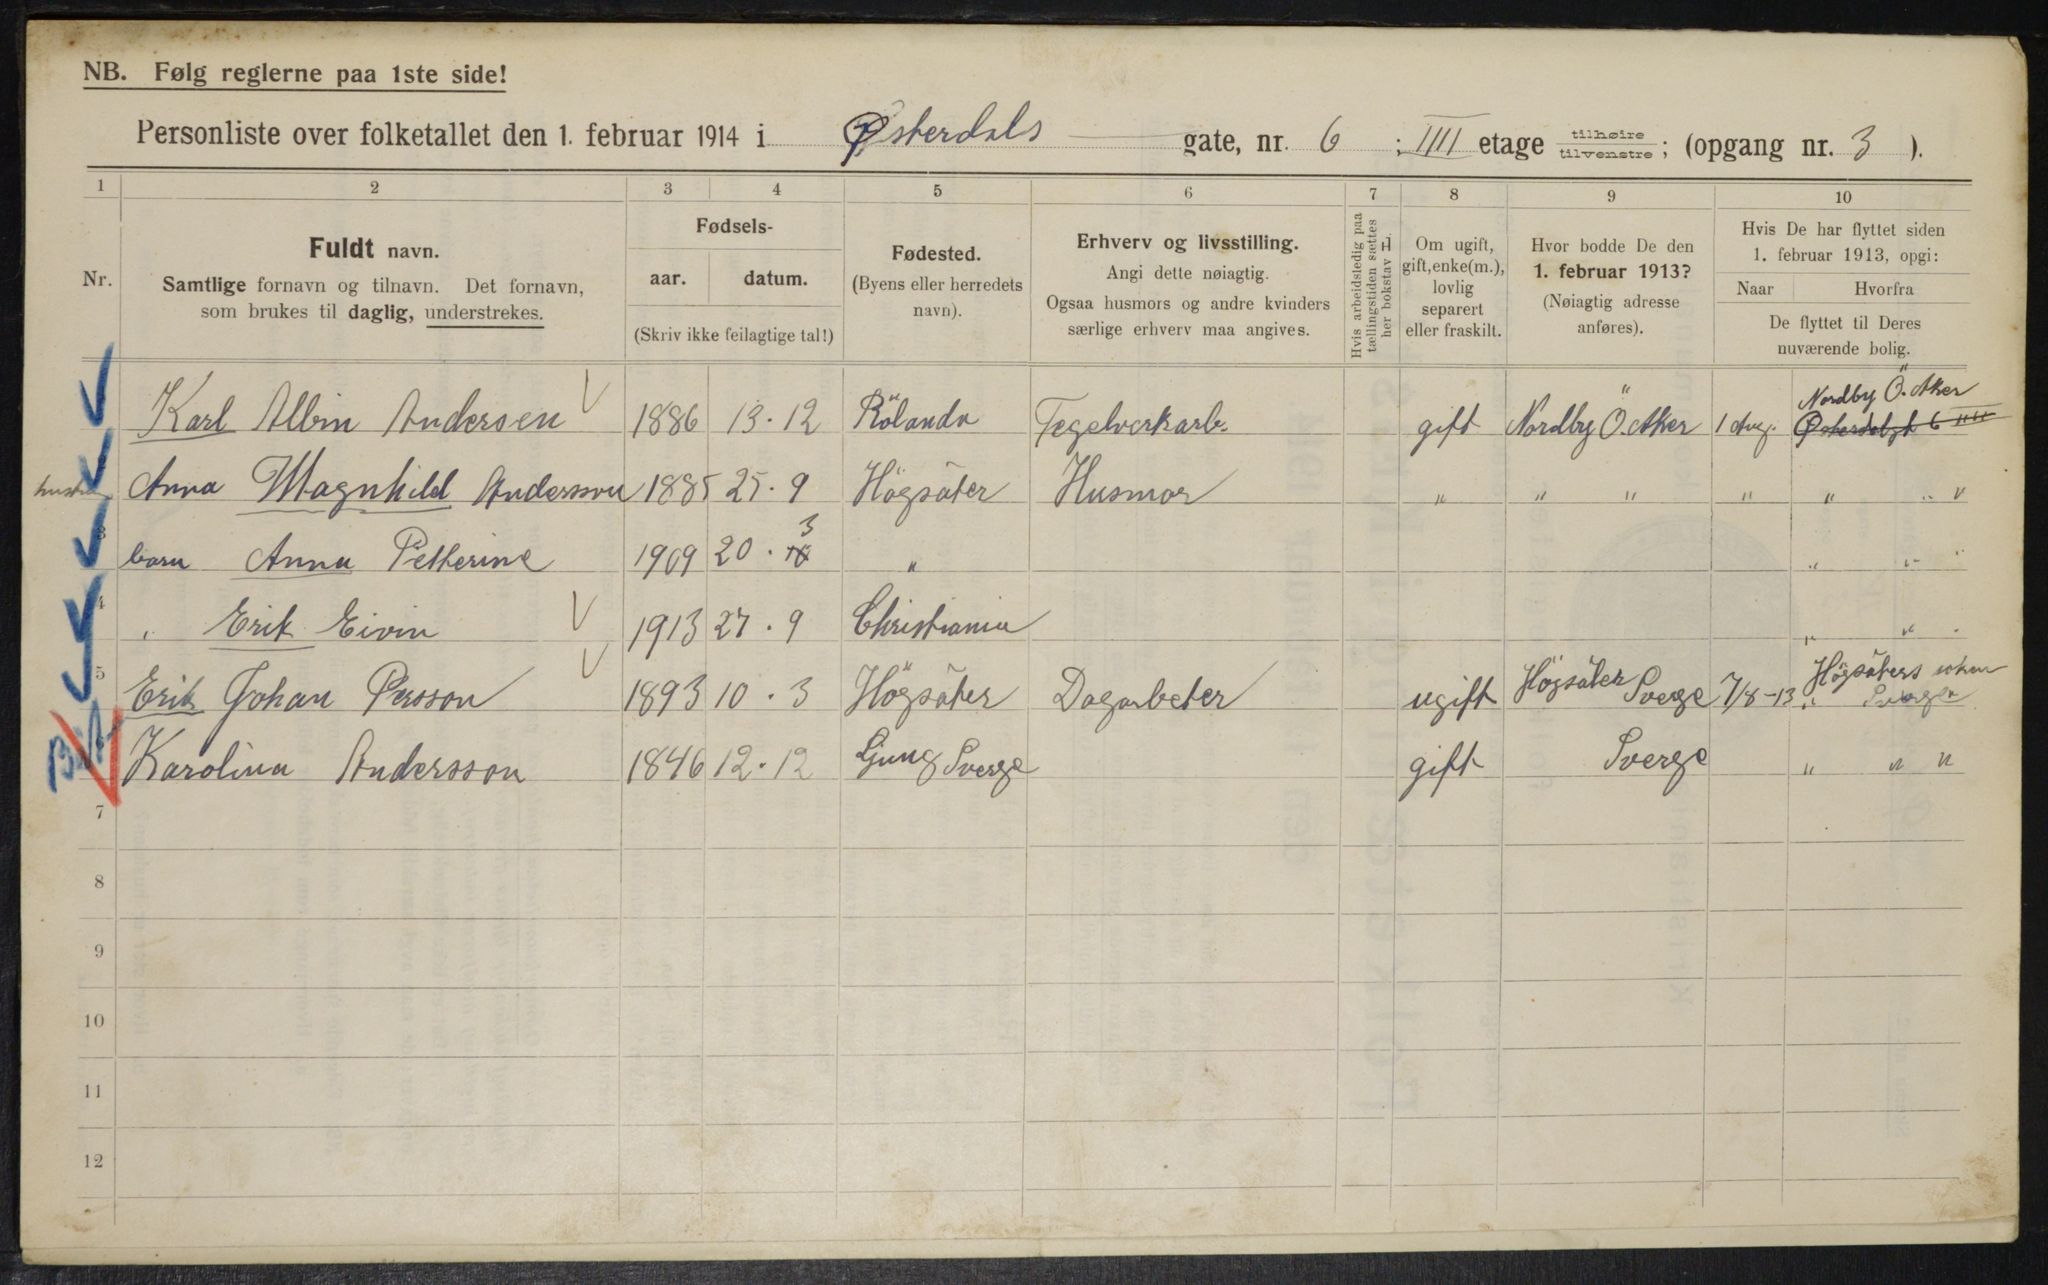 NB. Følg reglerne paa 1ste side!
Personliste over folketallet den 1. februar 1914 i Østerdals gate, nr. 6 ; IIII etage tilhøire tilvenstre ; (opgang nr. 3 ).
1 2 3 4 5 6 7 8 9 10
Nr.
Fuldt navn.
Samtlige fornavn og tilnavn. Det fornavn,
som brukes til daglig, understrekes.
Fødsels-
aar. datum.
(Skriv ikke feilagtige tal!)
Fødested.
(Byens eller herredets
navn).
Erhverv og livsstilling.
Angi dette nøiagtig.
Ogsaa husmors og andre kvinders
særlige erhverv maa angives.
Hvis arbeidsledig paa
tællingstiden sættes
her bokstav L.
Om ugift,
gift, enke(m.),
lovlig
separert
eller fraskilt.
Hvor bodde De den
1. februar 1913?
(Nøiagtig adresse
anføres).
Hvis De har flyttet siden
1. februar 1913, opgi:
Naar Hvorfra
De flyttet til Deres
nuværende bolig.
Nordby Ö. Aker
Karl Albin Andersen 1886 13·12 Rölanda Tegelverkarb. gift Nordby Ö. Aker 1 Aug. Østerdalgt 6 IIII
Anna Magnhild Andersson 1885 25·9 Högsäter Husmor " " " " " " "
3
barn Anna Petherine 1909 20· " " " "
4 " Erik Eivin 1913 27·9 Christiania " " "
5 Erik Johan Persson 1893 10·3 Högsäter Dagarbeter ugift Högsäter Sverge 7/8-13 Högsäters
" Sverge
Karolina Andersson 1846 12·12 Ljung Sverge gift Sverge " " "
7
8
9
10
11
12